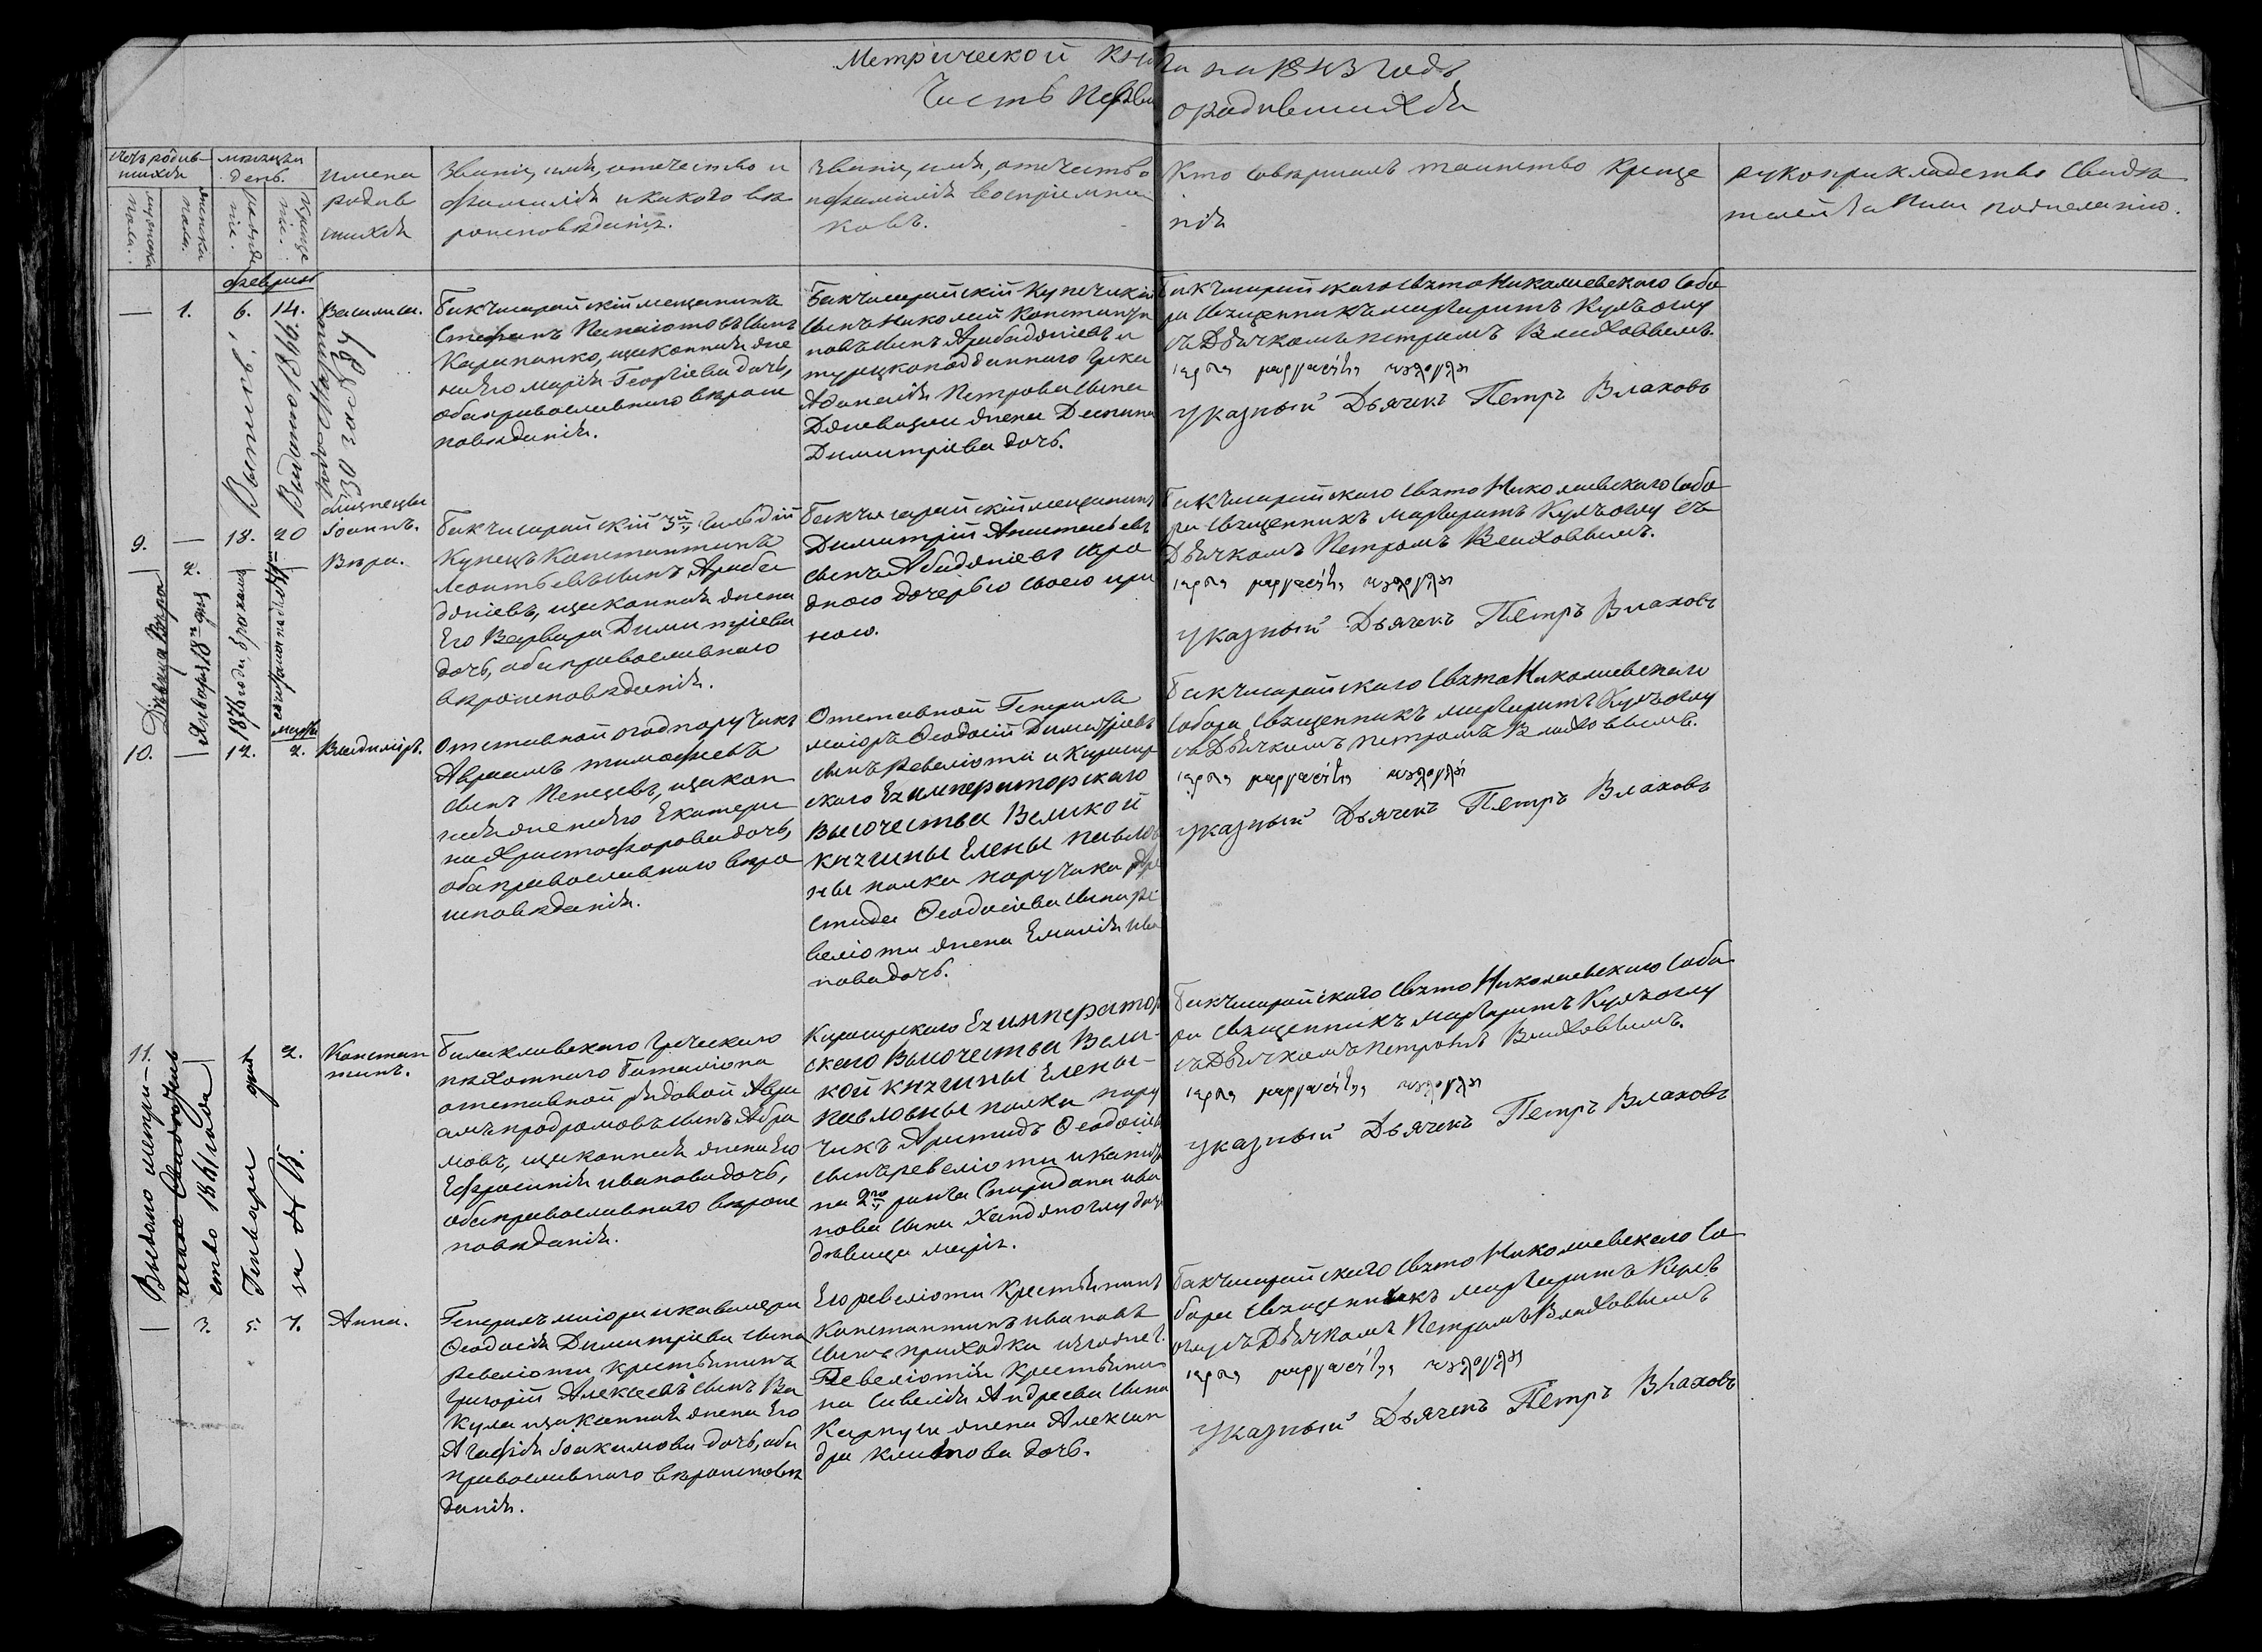 Метрической книги на 1843 годъ
Часть перва о родившихся
Счетъ родив-
шихся
мужеска
пола.
женска
пола.
мѣсяцъ и
день.
рожде
нія.
Креще
нія.
имена
родив
шихся
Званіе, имя, отечество и
фамилія и какого вѣ
роисповѣданія.
Званіе, имя, отечество
и фамилія воспріемни
ковъ.
Кто совершалъ таинство креще
нія
рукоприкладство свидѣ
телей записи по желанію.
февраль
— 1. 6. 14. Василиса.
Бакчисарайскій мещанинъ
Стефанъ Панаіотовъ сынъ
Калапанко, и законная же
на его Марія Георгіева дочь,
оба православнаго вѣроис
повѣданія.
Бакчисарайскій Купеческій
сынъ Николай Константи
новъ сынъ Арабаджіевъ и
турецкоподданнаго Грека
Аданасія Петрова сына
жена Деспина
Димитріева дочь.
Бакчисарайскаго Свято Николаевскаго Собо
ра Священникъ Маргаритъ Кулъоглу
съ Дьячкомъ Петромъ Влаховымъ.
Указный Дьячекъ Петръ Влаховъ
близнецы
9. — 18. 20 Іоаннъ.
— 2. Вѣра.
Бакчисарайскій 3й Гильдіи
Купецъ Константинъ
Леонтьевъ сынъ Араба
джіевъ, и законная жена
Его Варвара Димитріева
дочь, оба православнаго
вѣроисповѣданія.
Бакчисарайскій мещанинъ
Димитрій Анастасьевъ
сынъ Абаджіевъ съ ро
дною дочерью своею Ири
ною.
Бакчисарайскаго Свято Николаевскаго Собо
ра Священникъ Маргаритъ Кулъоглу съ
Дьячкомъ Петромъ Влаховымъ.
Указный Дьячекъ Петръ Влаховъ
мартъ
10. — 12. 2. Владиміръ.
Отставной подпоручикъ
Авраамъ Тимофѣевъ
сынъ Пенцевъ, и закон
ная жена его Екатери
на Христофорова дочь,
оба православнаго вѣро
исповѣданія.
Отставной Генералъ
маіоръ Ѳеодосій Димитріевъ
сынъ Ревеліоти и Кирасир
скаго Ея императорскаго
Высочества Великой
княгини Елены Павлов
ны полка поручика Ари
стида Ѳеодосіева сына Ре
веліоти жена Емилія Ива
нова дочь.
Бакчисарайскаго Свято Николаевскаго
Собора Священникъ Маргаритъ Кулъоглу
съ Дьячкомъ Петромъ Влаховымъ.
Указный Дьячекъ Петръ Влаховъ
11. — 2. Констан
тинъ.
Балаклавскаго Греческаго
пѣхотнаго Баталіона
отставной рядовой Авра
амъ Продромовъ сынъ Абра
мовъ, и законная жена Его
Ефросинія Иванова дочь,
оба православнаго вѣроис
повѣданія.
Кирасирскаго Ея император
скаго Высочества Вели-
кой княгини Елены-
Павловны полка пору
чикъ Аристидъ Ѳеодосіевъ
сынъ Ревеліоти и капита
на 2го ранга Спиридона Ива
нова сына Ханджоглу дочь
дѣвица Марія.
Бакчисарайскаго Свято Николаевскаго Собо
ра Священникъ Маргаритъ Кулъоглу
съ Дьячкомъ Петромъ Влаховымъ.
Указный Дьячекъ Петръ Влаховъ
— 3. 5. 7. Анна.
Генералъ маіора и кавалера
Ѳеодосія Димитріева сына
Ревеліоти крестьянинъ
Григорій Алексѣевъ сынъ Ва
кула и законная жена Его
Агафія Іоакимова дочь, оба
православнаго вѣроисповѣ
данія.
Его Ревеліоти крестьянинъ
Константинъ Ивановъ
сынъ Приходка и его же Г.
Ревеліотія крестьяни
на Савелія Андреева сына
Карпуши жена Алексан
дра Климова дочь.
Бакчисарайскаго Свято Николаевскаго Со
бора Священникъ Маргаритъ Кулъ
оглу съ Дьячкомъ Петромъ Влаховымъ
Указный Дьячекъ Петръ Влаховъ
Выписъ.
Выдано 1846.
за № 84
Дѣвица Вѣра
Января 18го дня
1876 года браком
Выдано метри—
ческое Свидѣтель
ство 1861 года
Генваря дня
за № 15.